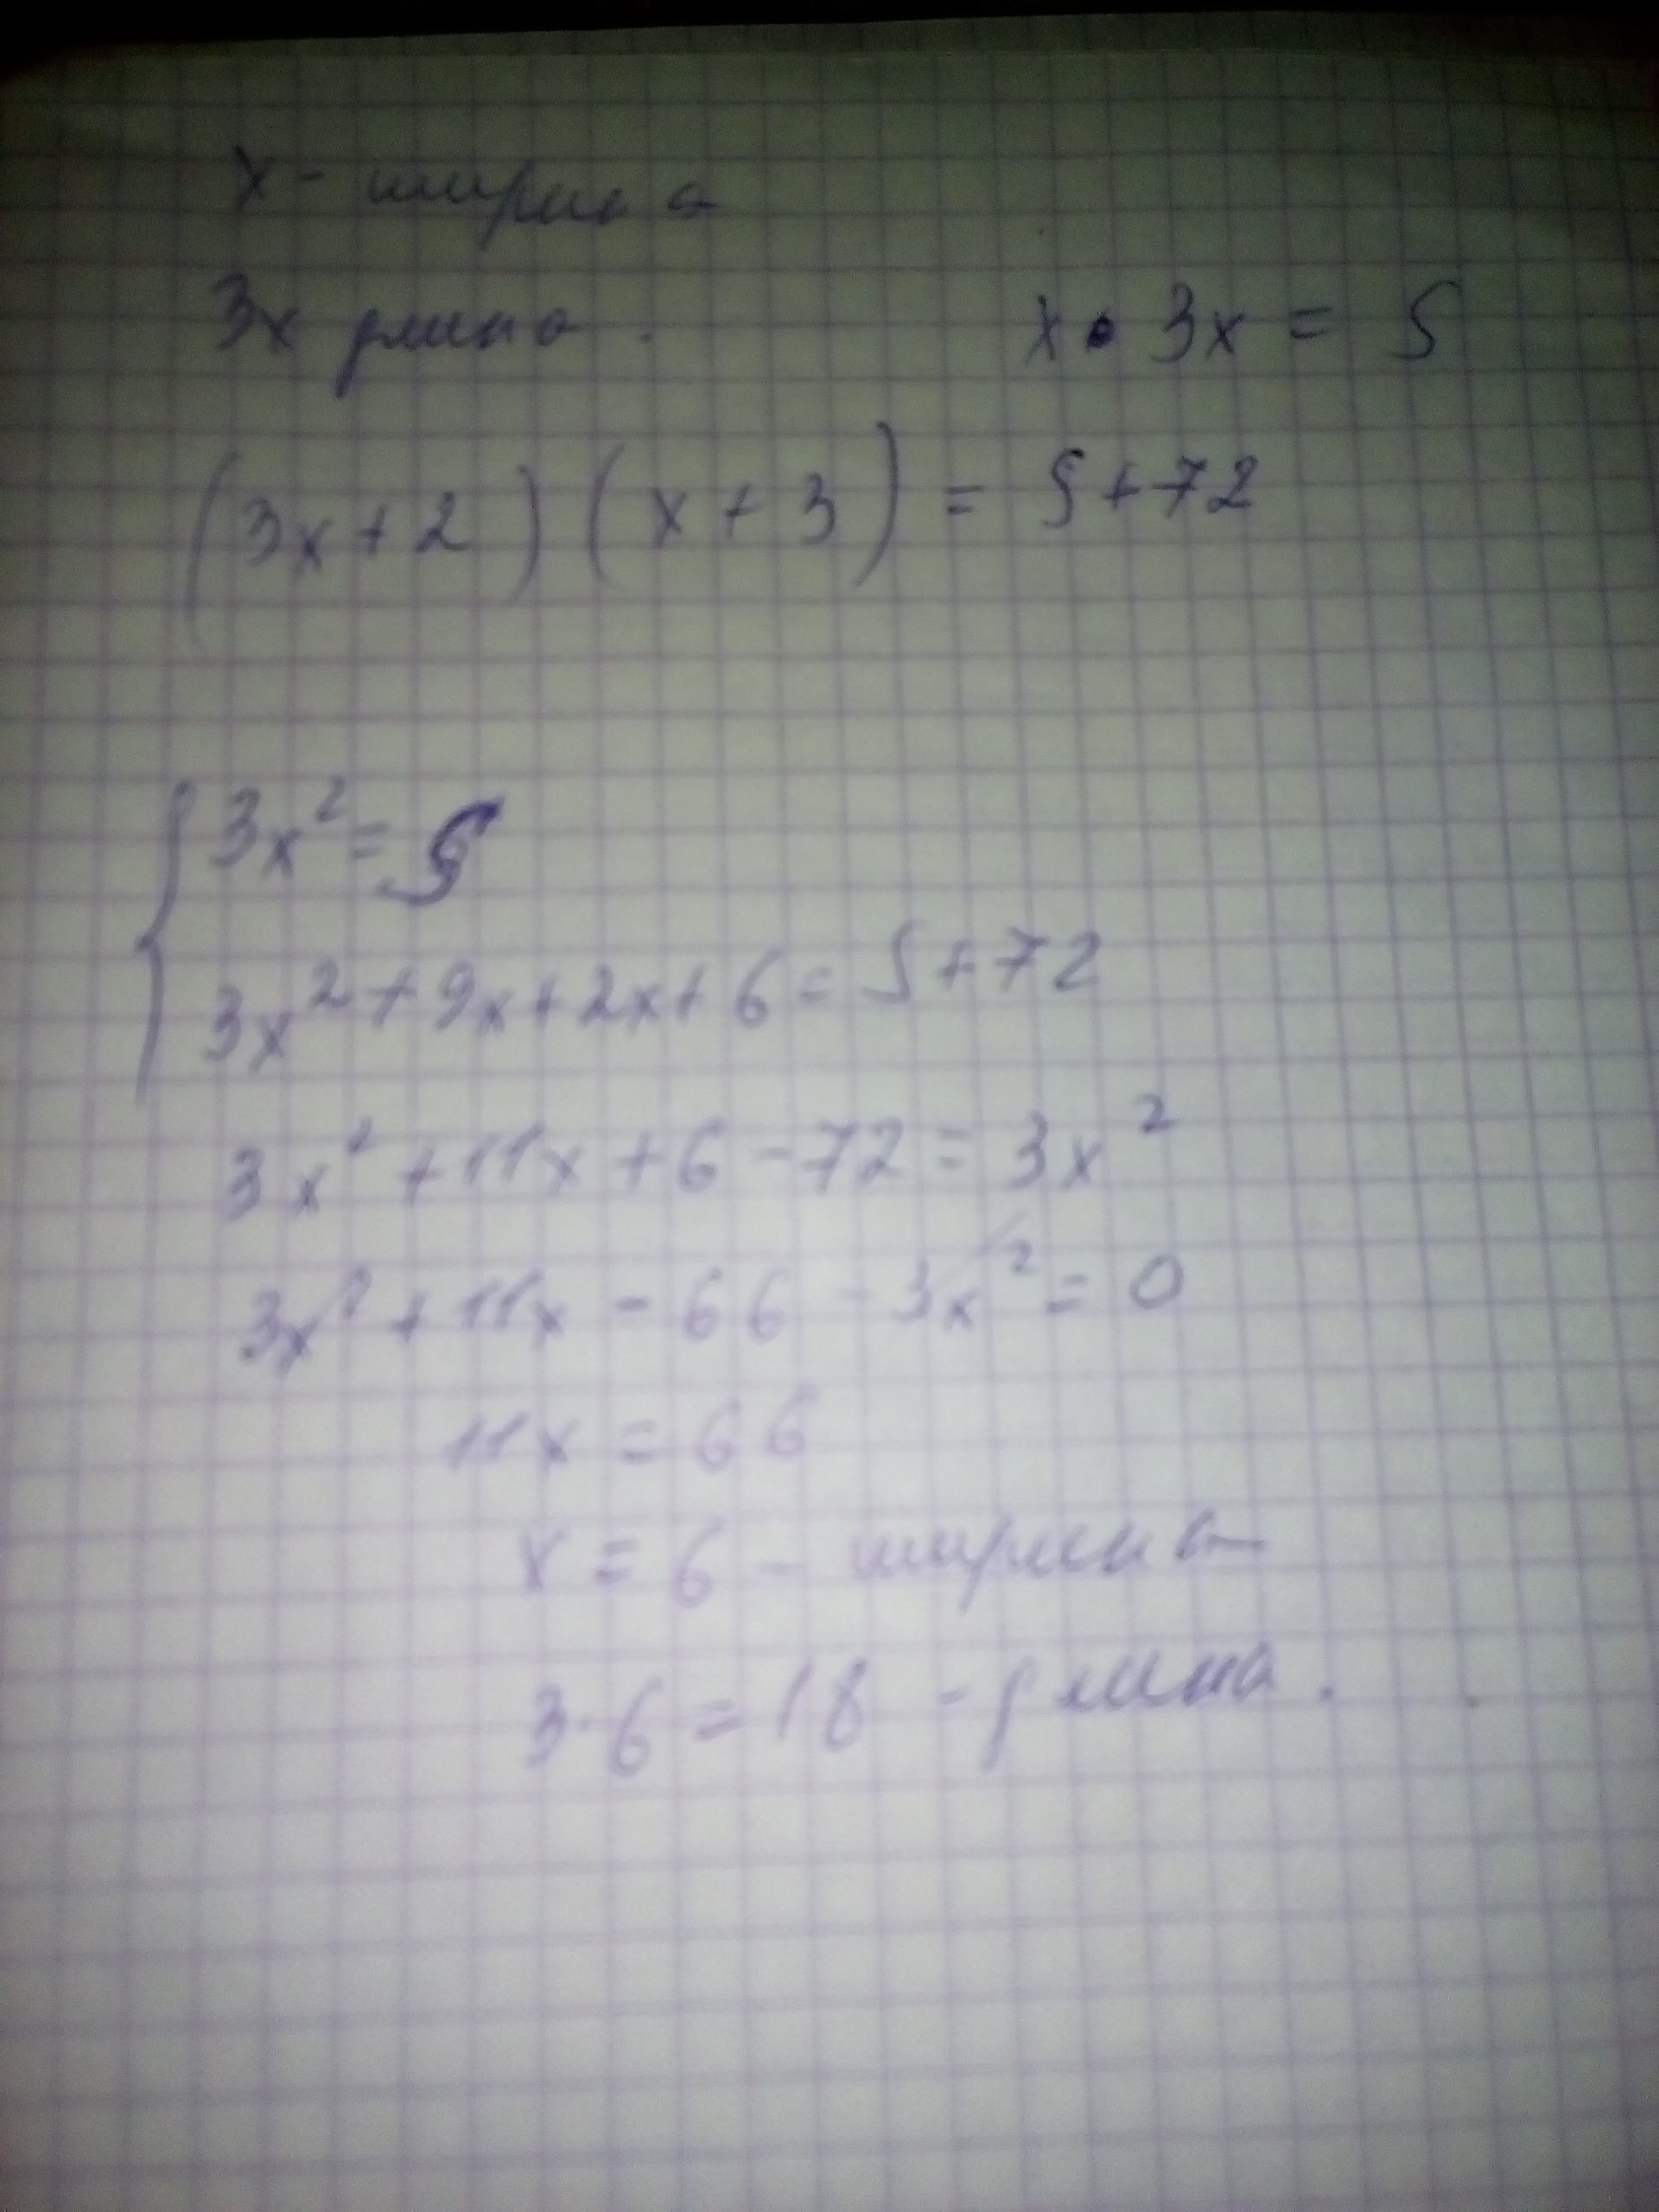 x - ширина
3x длина.
x • 3x = S
(3x + 2) (x + 3) = S + 72
3x² = S
3x² + 9x + 2x + 6 = S + 72
3x² + 11x + 6 - 72 = 3x²
3x² + 11x - 66 - 3x² = 0
11x = 66
x = 6 - ширина
3·6 = 18 - длина.